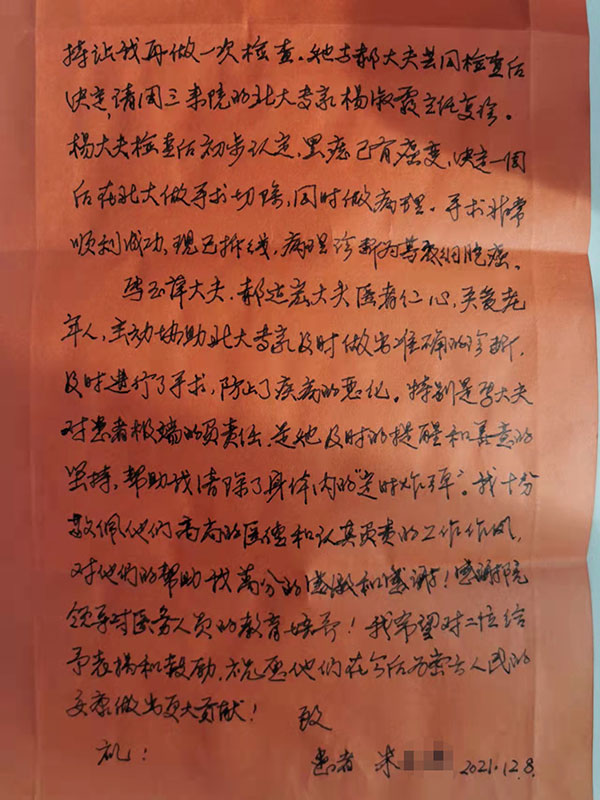 持让我再做一次检查。她与郝大夫共同检查后
决定，请周三来院的北大专家杨淑霞主任复诊。
杨大夫检查后初步认定，黑痣已有癌变，决定一周
后在北大做手术切除，同时做病理。手术非常
顺利成功，现已拆线，病理诊断为基底细胞癌。
李玉萍大夫、郝进宏大夫医者仁心，关爱老
年人，主动协助北大专家及时做出准确的诊断，
及时进行了手术，防止了疾病的恶化。特别是李大夫
对患者极端的负责任，是她及时的提醒和善意的
坚持，帮助我清除了身体内的“定时炸弹”。我十分
敬佩他们高尚的医德和认真负责的工作作风，
对他们的帮助我万分的感激和感谢！感谢院
领导对医务人员的教育培养！我希望对二位给
予表扬和鼓励，祝愿他们在今后为密云人民的
安康做出更大贡献！ 致
礼！
患者 朱 2021.12.8